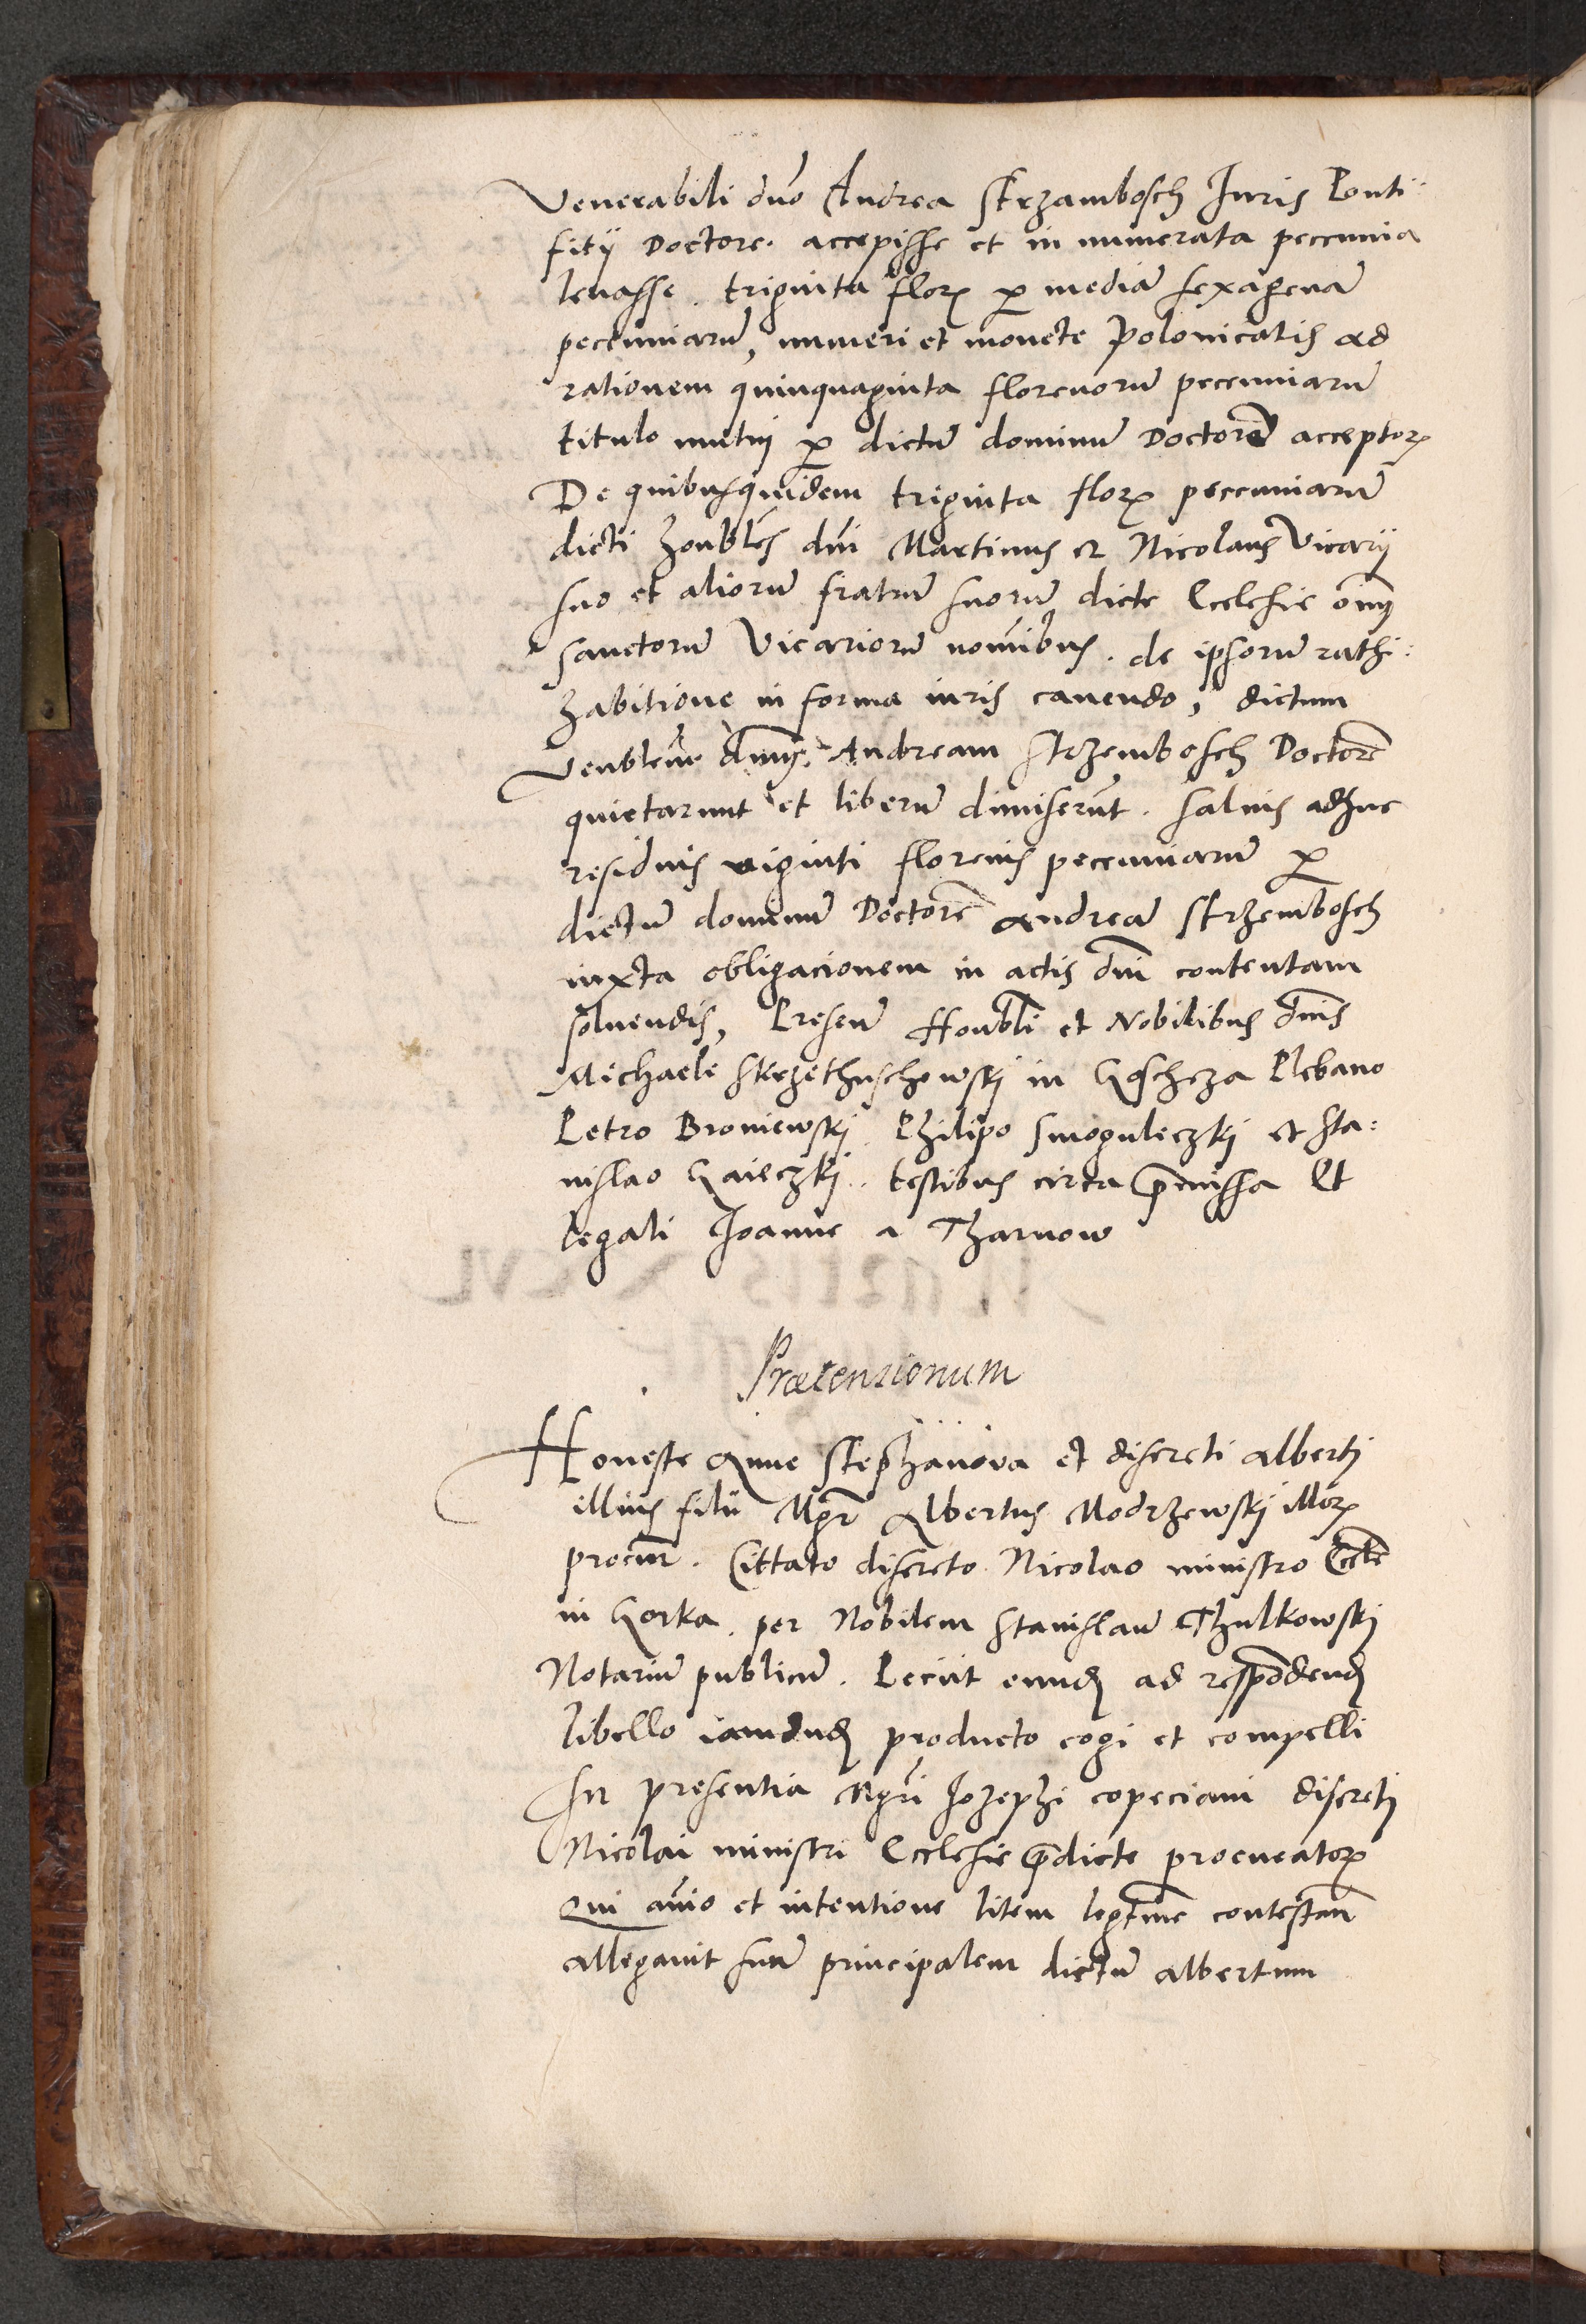 Venerabili dno Andrea Strzambosch Iuris Ponti:
fitij Doctore. accepisse et in numerata peccunia
levasse. triginta flor p mediā sexagenā
peccuniarū, numeri et monete Polonicalis ad
rationem quinquaginta florenorū peccuniarū
titulo mutuj p dictū dominū Doctorē acceptor
De quibusquidem triginta flor peccuniarū
dicti honbles dni Martinus et Nicolaus Vicarij
suo et aliorū fratrū suorū dicte Ecclesie oīm
sanctorū Vicariorū nomībus. de ipsorū rathi:
habitione in forma iuris cavendo, dictum
Venblem dnm. Andream Strzembosch Doctorē
quietarunt et liberū dimiserūt. salvis adhuc
residuis viginti florenis peccuniarū p
dictū dominū Doctorē Andreā Strzembosch
iuxta obligacionem in actis dni contentam
solvendis, Presen Honbli et Nobilibus dnis
Michaele Skrzethuschowskj in Goschcza Plebano
Petro Broniewskj. Philipo Smoguleczkj et Sta:
nislao Gaieczkj. testibus circa p̄missa Et
legali Joanne a Tharnow
Prætensionum
Honeste Anne Stephanova et discreti Albertj
illius filii Mgr Albertus Modrzewskj illor
procur. Cittato discreto Nicolao ministro Eccle
in Gorka. per Nobilem Stanislaū Thulkowskj
Notariū publicū. Peciit eund ad respōdend
libello iamdud producto cogi et compelli
In presentia Mgri Jozephi copeciani discretj
Nicolai ministri Ecclesie p̄dicte procurator
Qui aīo et intentione litem legtme contestan
allegavit suū principalem dictū Albertum